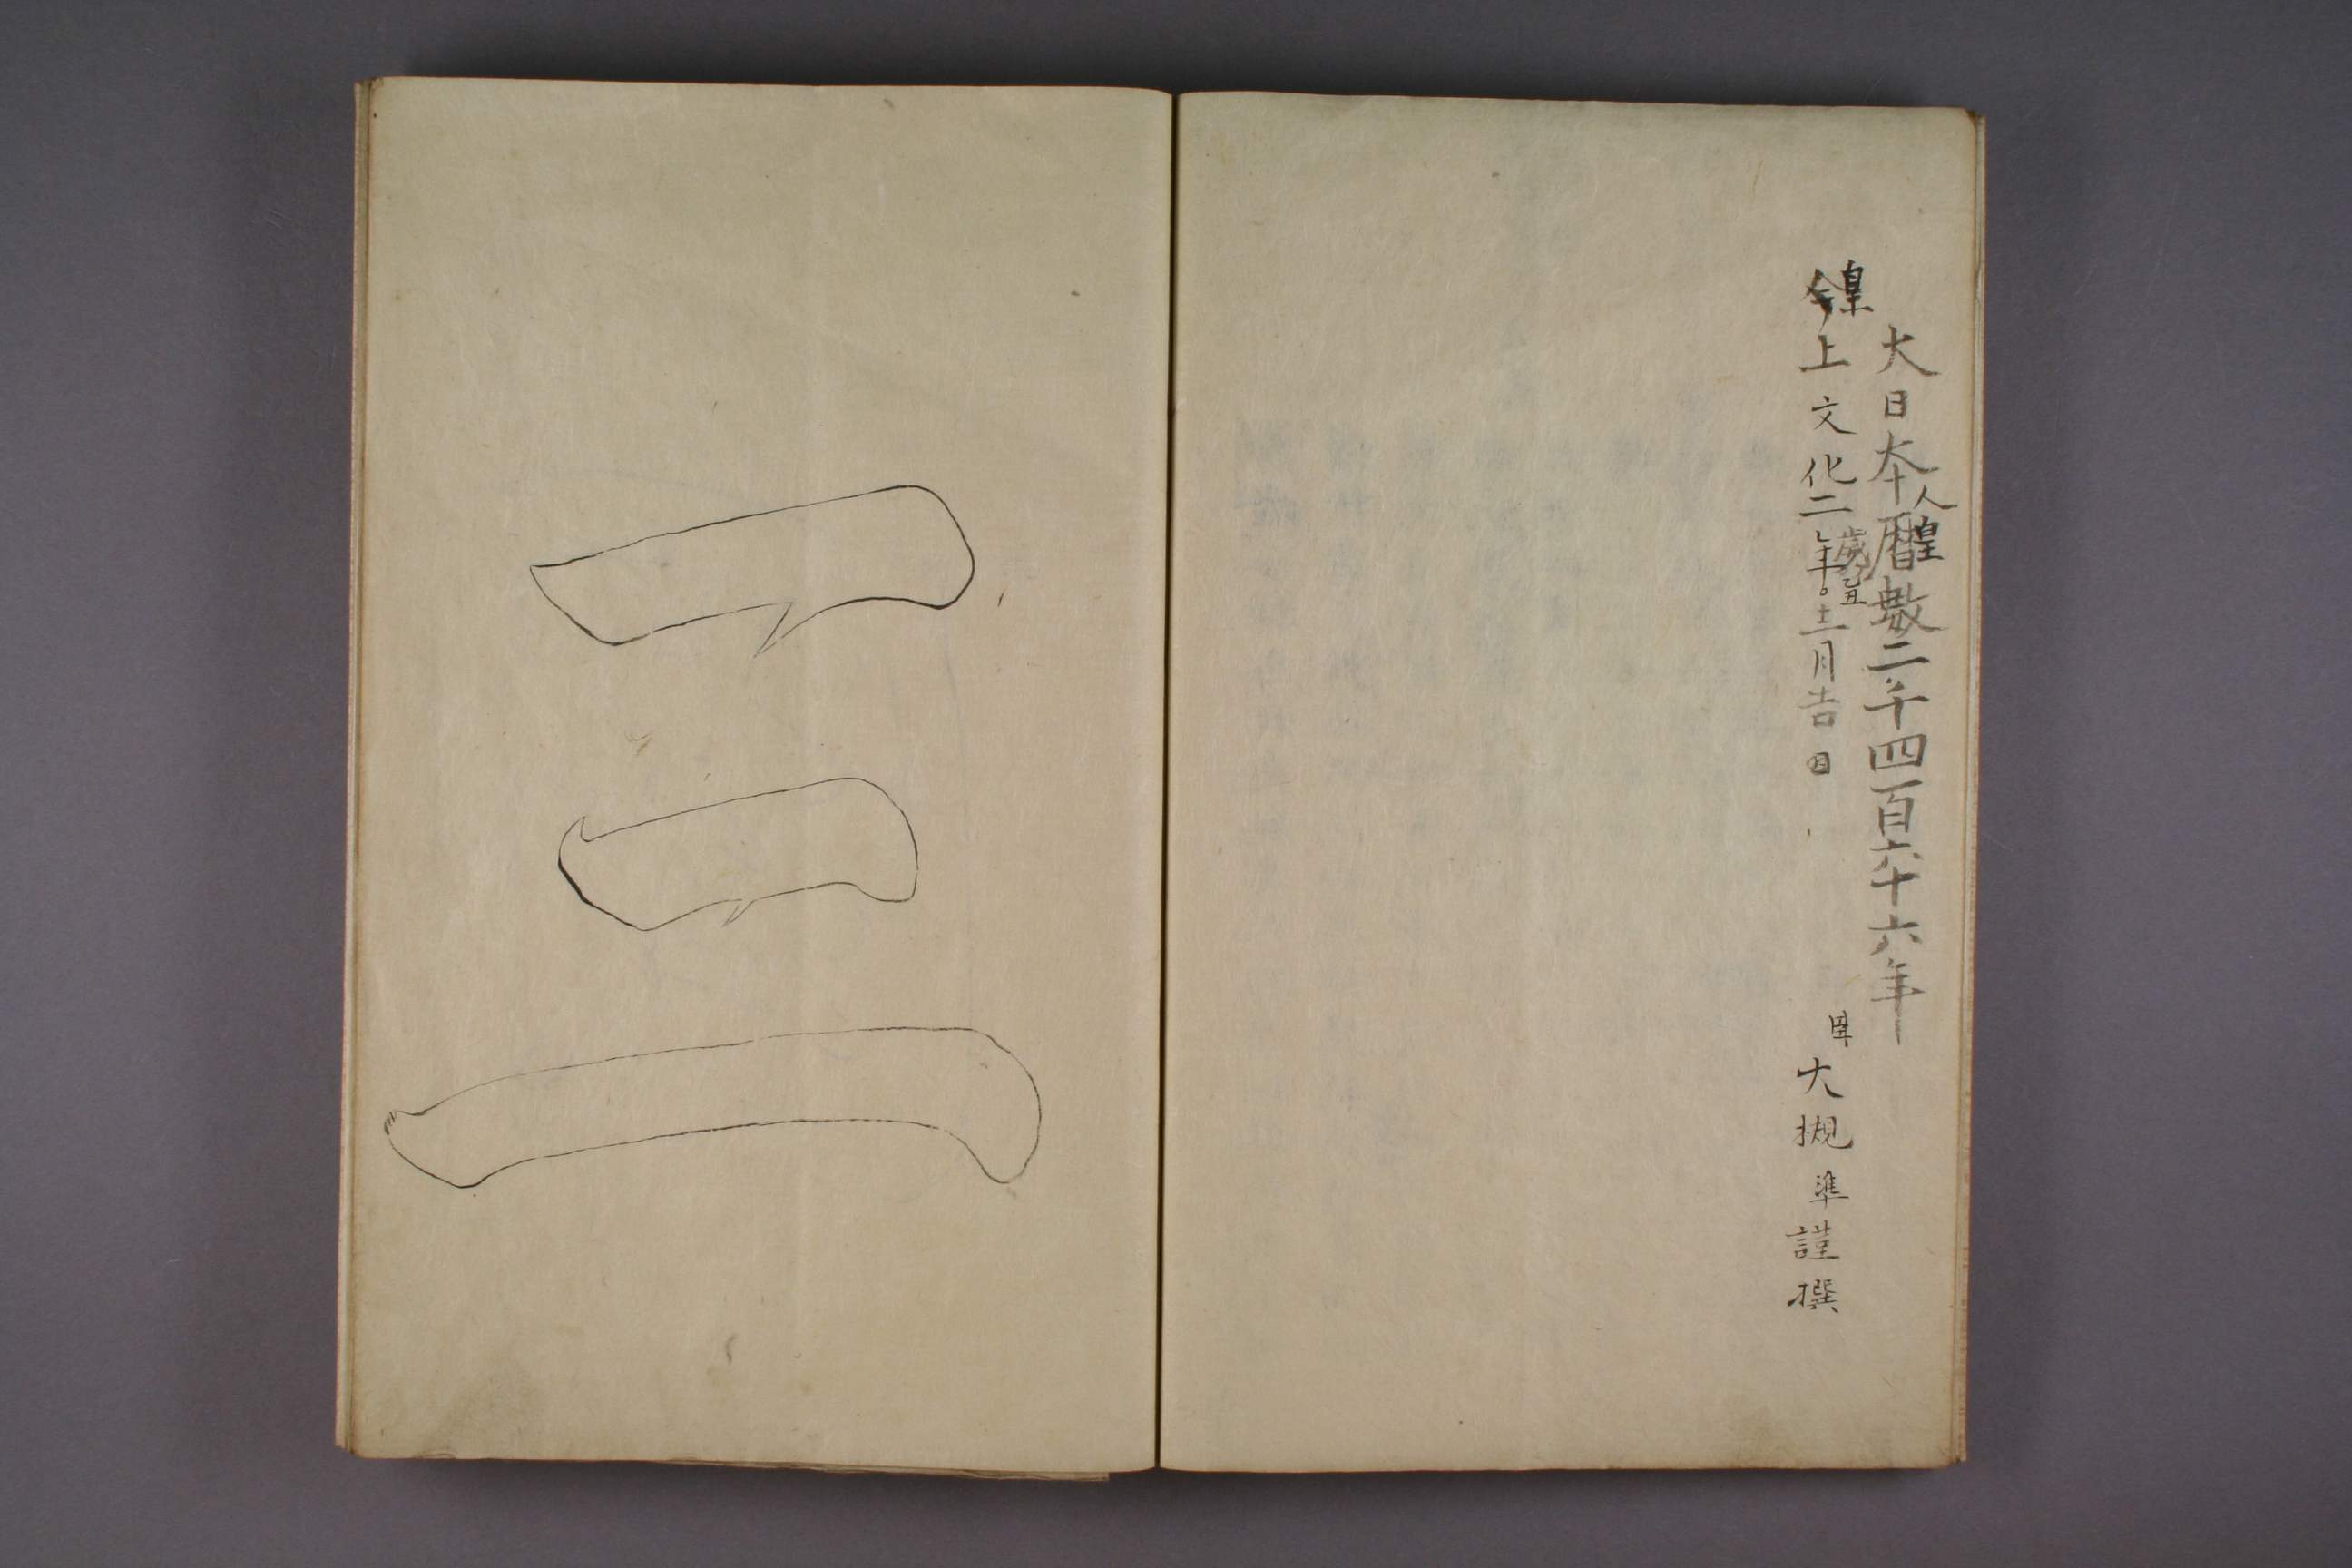 大日本人皇曆數二千四百六十六年
今皇上文化二年歲乙丑十二月吉日
大槻準謹撰
三